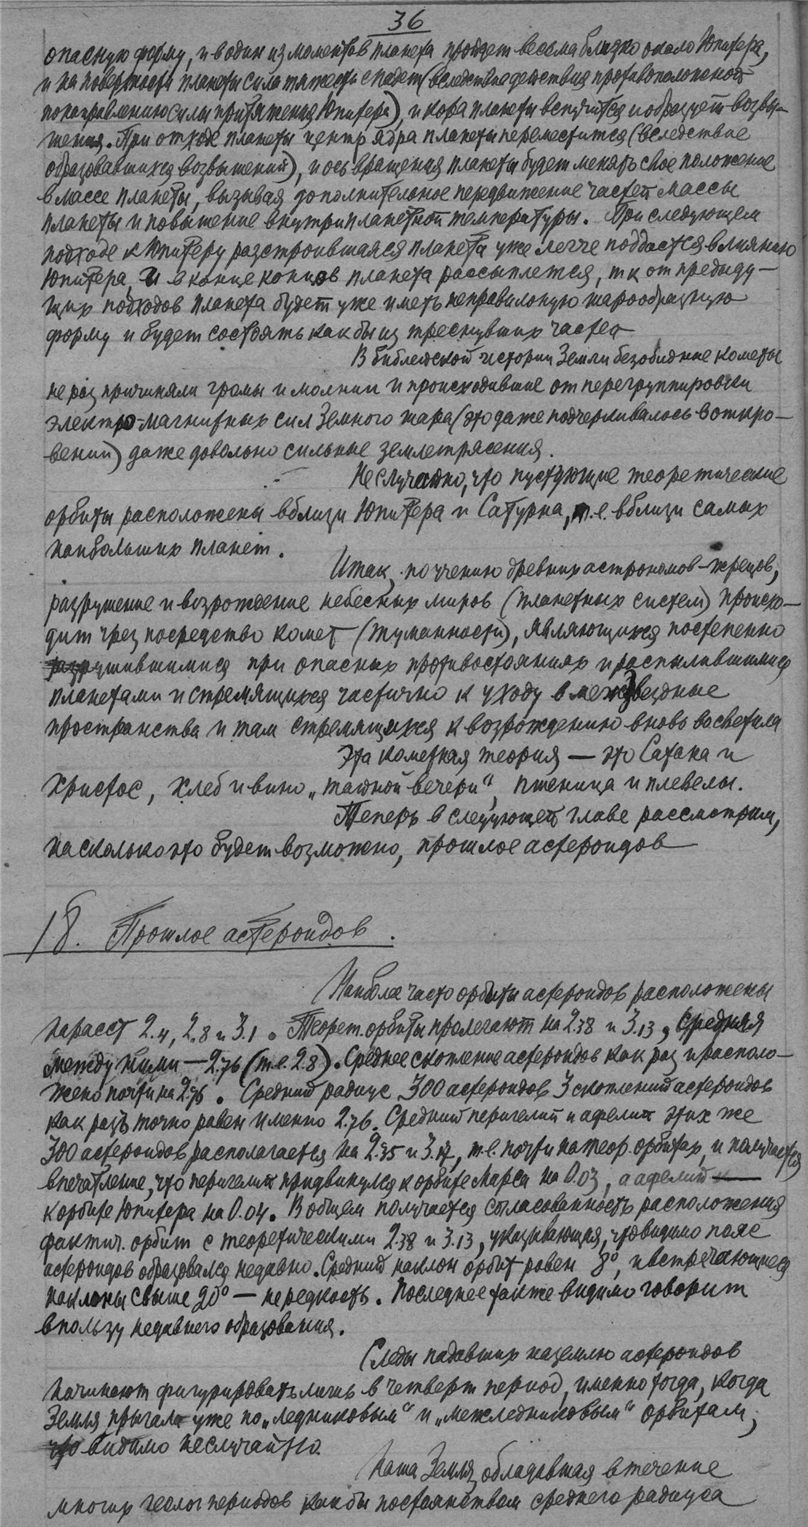 36
опасную форму, и в один из моментов планета пройдет весьма близко около Юпитера,
и на поверхности планеты сила тяжести спадет (вследствие действия противоположной
по направлению силы притяжения Юпитера), и кора планеты вспучится и образует возвы-
шения. При отходе планеты центр ядра планеты переместится (вследствие
образовавшихся возвышений), и ось вращения планеты будет менять свое положение
в массе планеты, вызывая дополнительное передвижение частей массы
планеты и повышение внутрипланетной температуры. При следующем
подходе к Юпитеру расстроившаяся планета уже легче поддастся влиянию
Юпитера, и в конце концов планета рассыплется, т к от предыду-
щих подходов планета будет уже иметь неправильную шарообразную
форму и будет состоять как бы из треснувших частей
В библейской истории Земли безобидные кометы
не раз причиняли громы и молнии и происходившие от перегруппировки
электро-магнитных сил Земного шара (это даже подчеркивалось в откро-
вении) даже довольно сильные землетрясения.
Не случайно, что пустующие теоретические
орбиты расположены вблизи Юпитера и Сатурна, т.е. вблизи самых
наибольших планет.
Итак, по учению древних астрономов-жрецов,
разрушение и возрождение небесных миров (планетных систем) происхо-
дит чрез посредство комет (туманности), являющихся постепенно
разрушившимися при опасных противостояниях и распылившимися
планетами и стремящихся частично к уходу в межзвездные
пространства и там стремящихся к возрождению вновь во светила
Эта кометная теория — это Сатана и
Христос, хлеб и вино „тайной вечери", пшеница и плевелы.
Теперь в следующей главе рассмотрим,
насколько это будет возможно, прошлое астероидов
18. Прошлое астероидов.
Наиболее часто орбиты астероидов расположены
на расст 2.4, 2.8 и 3.1. Теорет. орбиты пролегают на 2.38 и 3.13, средняя
между ними — 2.76 (т.е. 2.8). Среднее скопление астероидов как раз и располо-
жено почти на 2.76. Средний радиус 300 астероидов 3 скоплений астероидов
как разъ точно равен именно 2.76. Средний перигелий и афелий этих же
300 астероидов располагается на 2.35 и 3.17, т.е. почти на теор. орбитах, и получается
впечатление, что перигелий придвинулся к орбите Марса на 0.03, а афелий —
к орбите Юпитера на 0.04. В общем получается согласованность расположения
фактич. орбит с теоретическими 2.38 и 3.13, указывающая, что видимо пояс
астероидов образовался недавно. Средний наклон орбит равен 8°, и встречающиеся
наклоны свыше 20° — не редкость. Последнее также видимо говорит
в пользу недавнего образования.
Следы падавших на землю астероидов
начинают фигурировать лишь в четверт период, именно тогда, когда
Земля прыгала уже по „ледниковым" и „межледниковым" орбитам,
что видимо не случайно.
Наша Земля, обладавшая в течение
многих геолог периодов как бы постоянством среднего радиуса